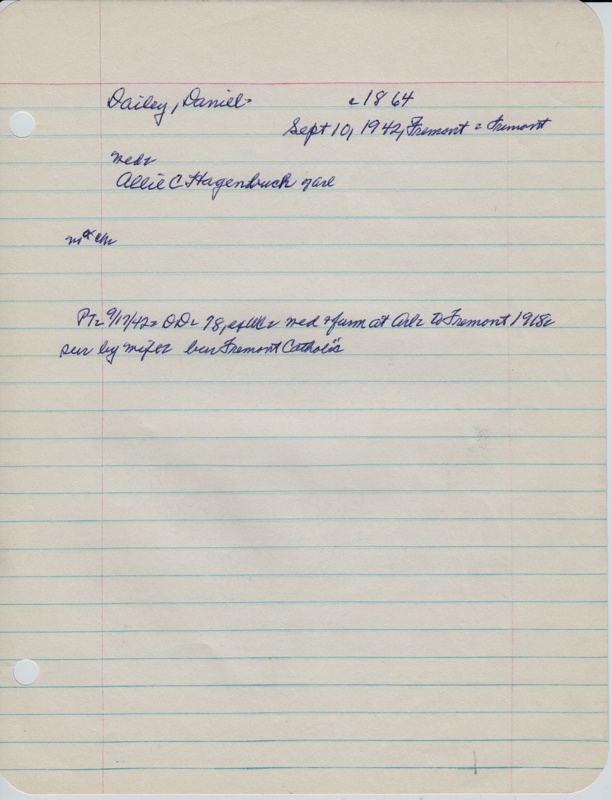 Dailey, Daniel. c1864
Sept 10, 1942, Fremont = Fremont
med=
Allie C Hagenbuch of Arl
no ch=
PT= 9/17/42= DD= 78, med + farm at Arl= to Fremont 1918=
sur by wife= bur Fremont Catholic